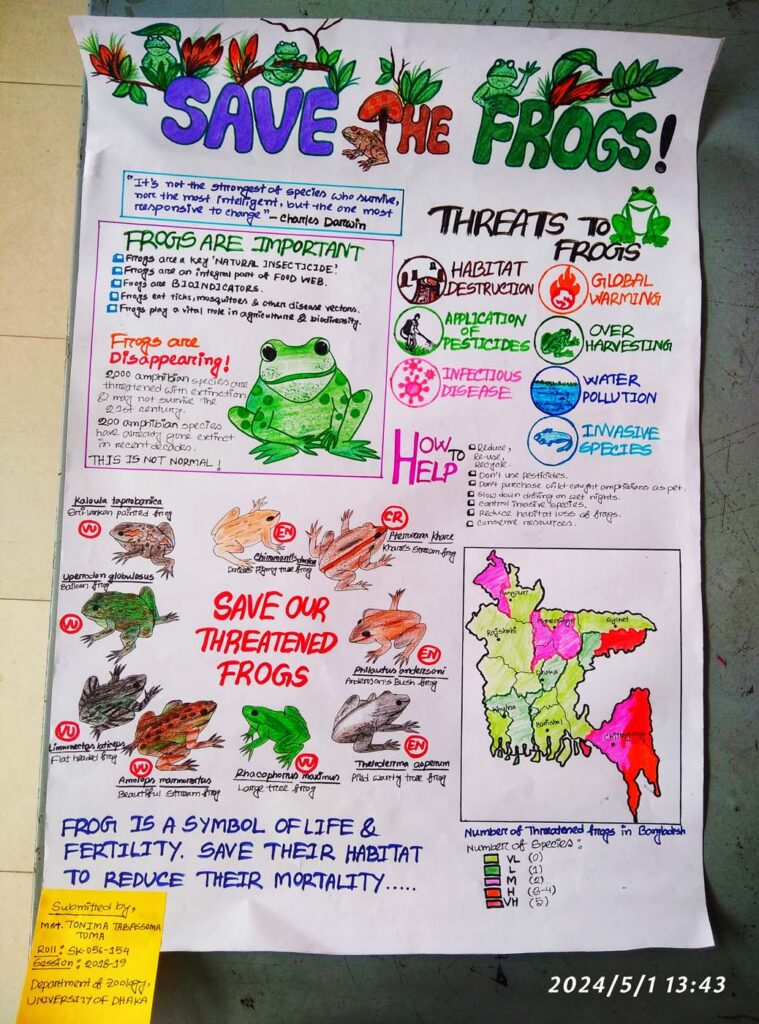 SAVE THE FROGS!
"It's not the strongest of species who survive,
nor the most intelligent, but the one most
responsive to change" - Charles Darwin
FROGS ARE IMPORTANT
Frogs are a key 'NATURAL INSECTICIDE'.
Frogs are an integral part of FOOD WEB.
Frogs are BIOINDICATORS.
Frogs eat ticks, mosquitoes & other disease vectors.
Frogs play a vital role in agriculture & biodiversity.
Frogs are
Disappearing!
2000 amphibian species are
threatened with extinction
& may not survive the
21st century.
200 amphibian species
have already gone extinct
in recent decades.
THIS IS NOT NORMAL!
THREATS TO
FROGS
HABITAT
DESTRUCTION
GLOBAL
WARMING
APPLICATION
OF
PESTICIDES
OVER
HARVESTING
INFECTIOUS
DISEASE
WATER
POLLUTION
INVASIVE
SPECIES
HOW TO
HELP
Reduce,
re-use,
recycle.
Don't use pesticides.
Don't purchase wild caught amphibians as pet.
Slow down driving on wet nights.
control invasive species.
Reduce habitat loss of frogs.
Conserve resources.
Kaloula taprobanica
Sri lankan painted frog
VU
EN
CR
Pterorana khare
Khare's stream frog
Uperodon globulosus
Balloon frog
VU
SAVE OUR
THREATENED
FROGS
EN
Philautus andersoni
Anderson's Bush frog
VU
Limnonectes laticeps
Flat headed frog
VU
Amolops marmoratus
Beautiful Stream frog
VU
Rhacophorus maximus
Large tree frog
EN
Theloderma asperum
Pied warty tree frog
Rangpur
Rajshahi
Mymensingh
Sylhet
Dhaka
Khulna
Barishal
Chittagong
Number of Threatened frogs in Bangladesh
Number of Species:
VL (0)
L (1)
M (2)
H (3-4)
VH (5)
FROG IS A SYMBOL OF LIFE &
FERTILITY. SAVE THEIR HABITAT
TO REDUCE THEIR MORTALITY.....
Submitted by,
MST. TONIMA TABASSOMA
TOMA
Roll: SK-056-154
Session: 2018-19
Department of Zoology,
UNIVERSITY OF DHAKA
2024/5/1 13:43